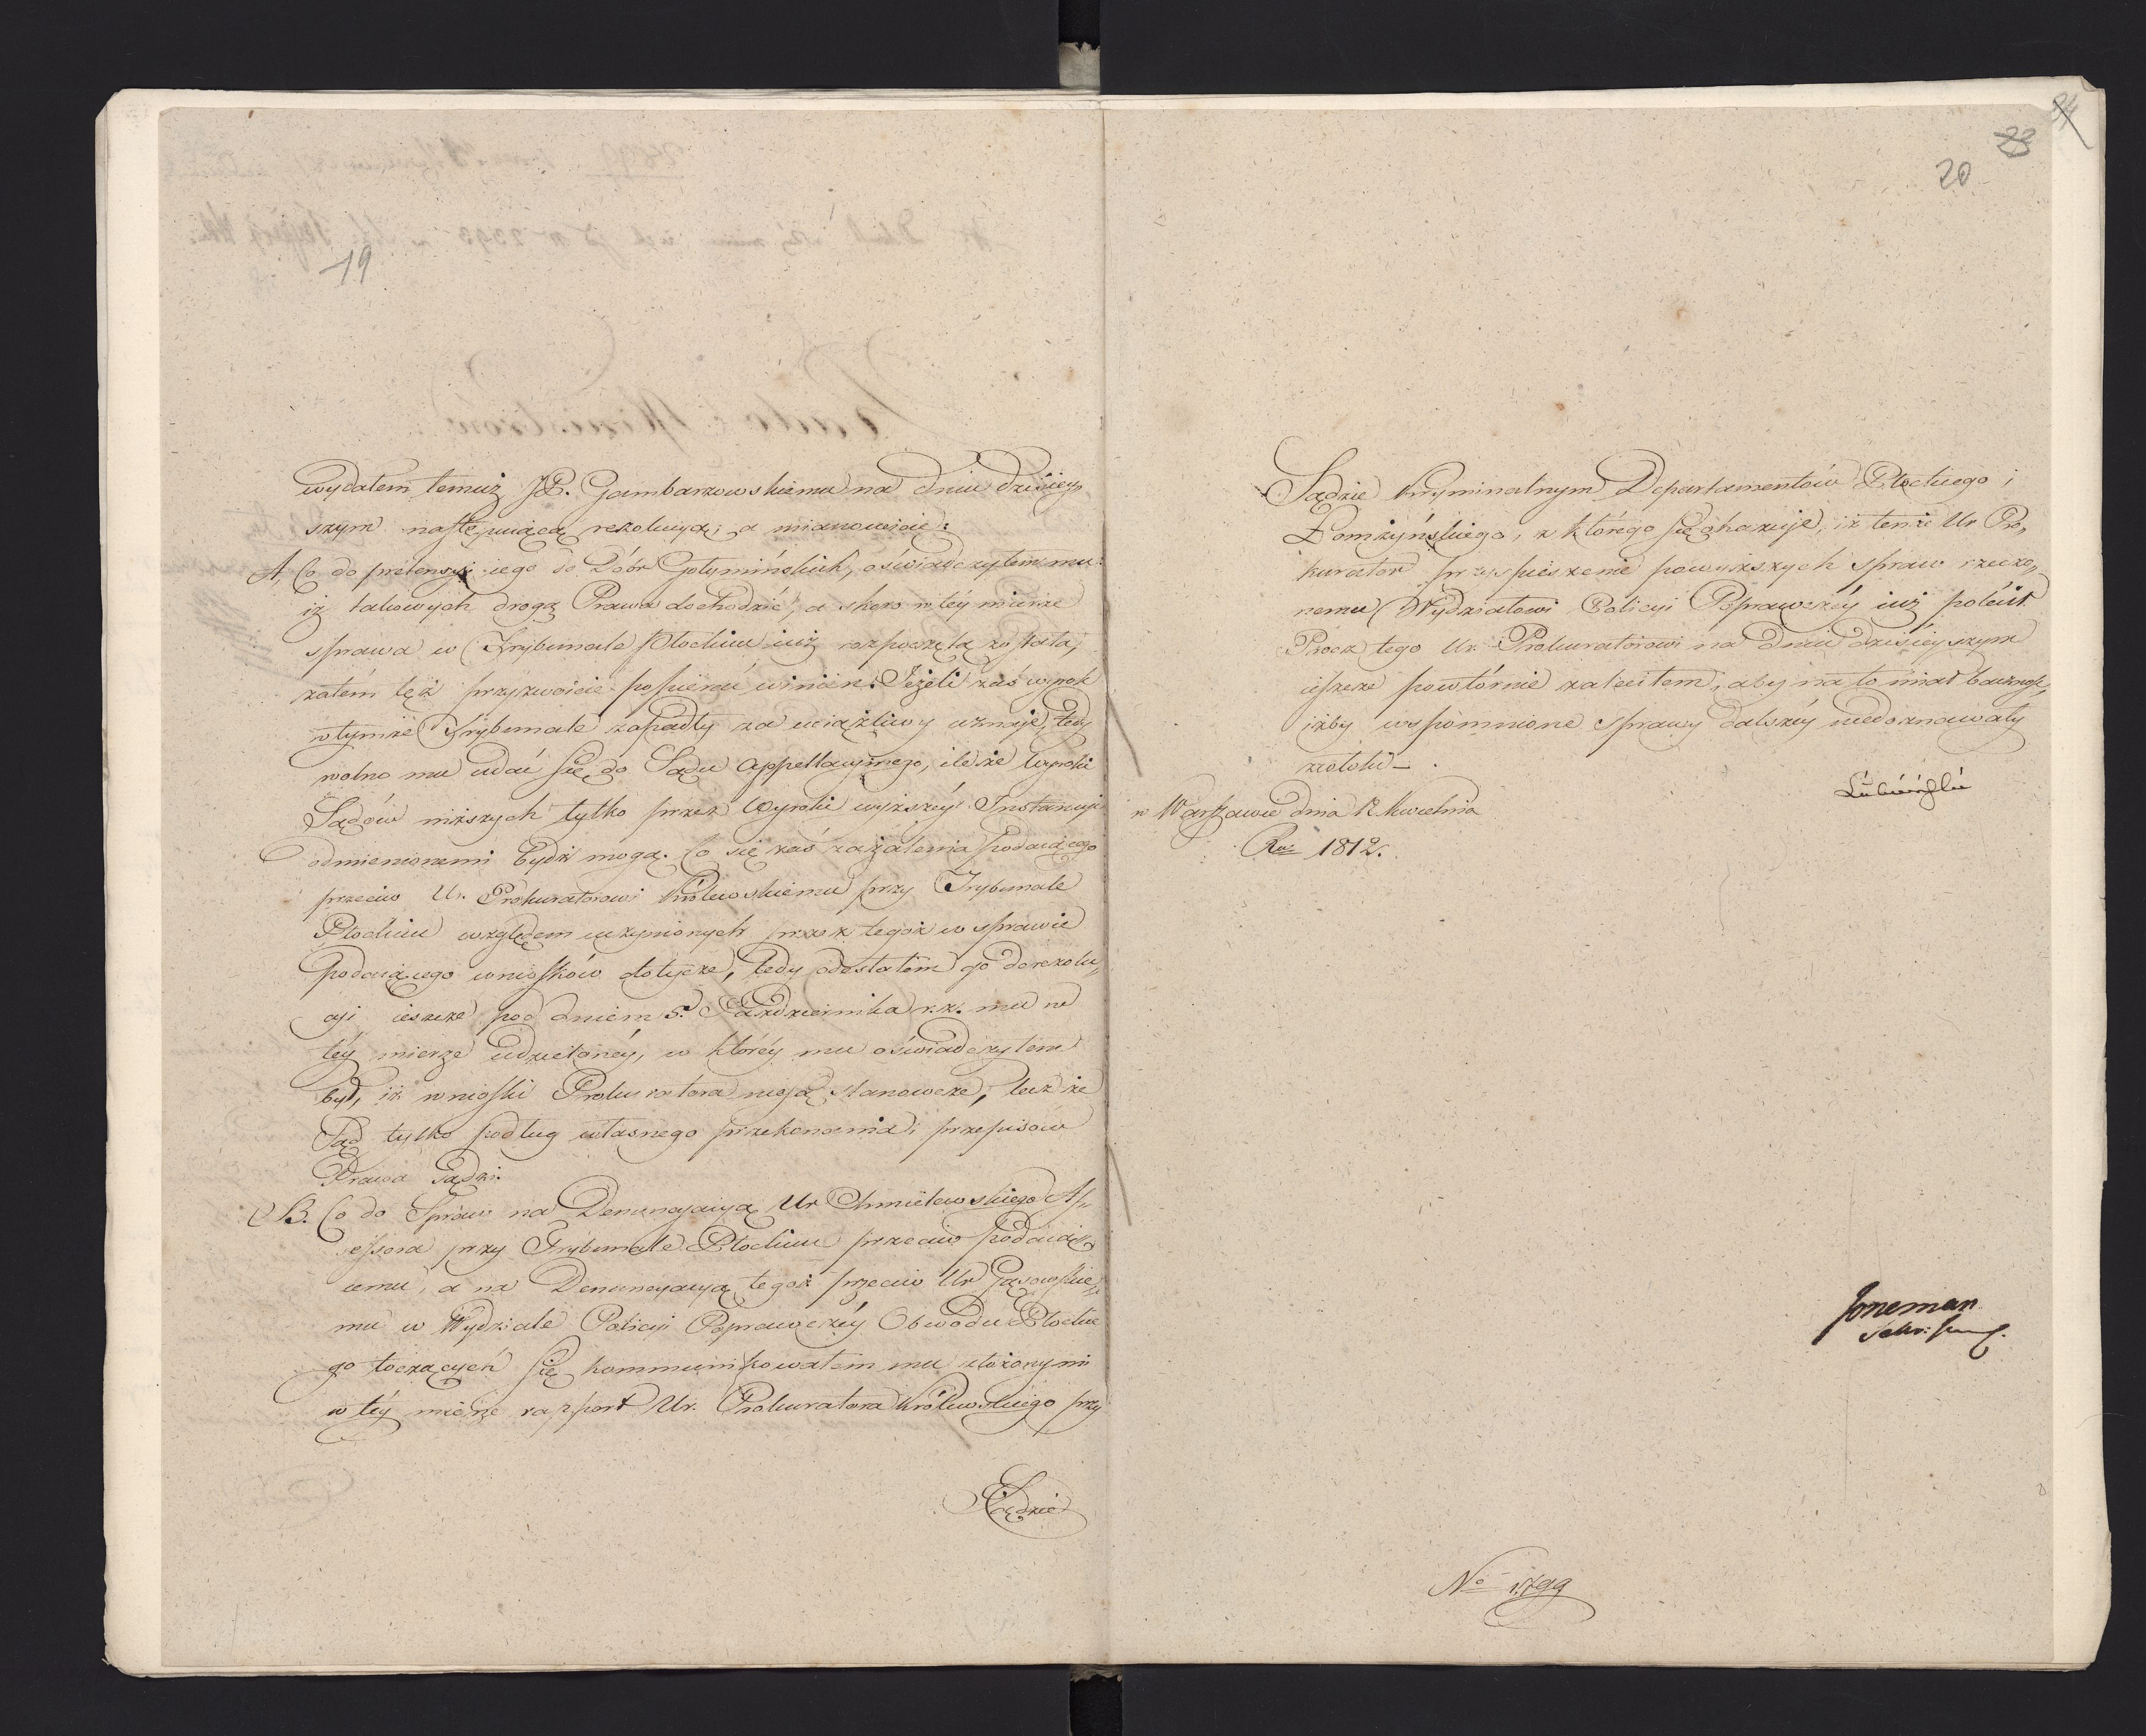 19
wydałem temuż JP. Gambarzewskiemu na dniu dzisiey„
szym następuiącą rezolucyą; a mianowicie:
A, Co do pretensyi iego do Dóbr Gołymińskich, oświadczyłem mu:
iż takowych drogą Prawa dochodzić, a skoro w téy mierze
sprawa w Trybunale Płockim iuż rozpoczętą została,
zatém też przyzwoicie popierać winien. Jeżeli zaś wyrok
w tymże Trybunale zapadły za uciążliwy uznaje, tedy
wolno mu udać się do Sądu Appellacyinego, ile że wyroki
Sądów niższych tylko przez Wyroki wyższéy Instancyi
odmienionemi bydź mogą. Co się zaś zażalenia podaiącego
przeciw Ur. Prokuratorowi Królewskiemu przy Trybunale
Płockim względem uczynionych przez tegoż w sprawie
podaiącego wniosków dotycze, tedy odesłałem go do rezolu„
cyi ieszcze pod dniem 5. Października r.z. mu w
téy mierze udzielonéy, w któréy mu oświadczyłem
był, iż wnioski Prokuratora nie są stanowcze, lecz że
Sąd tylko podług własnego przekonania i przepisów
Prawa sądzi.
B. Co do Spraw na Denuncyacyą Ur Chmielewskiego As„
sessora przy Trybunale Płockim przeciw podaią„
cemu, a na Denuncyacyą tegoż przeciw Ur Gąsowskie„
mu w Wydziale Policyi Poprawczéy Obwodu Płockie
go toczących się kommunikowałem mu złożony mi
w téy mierze rapport Ur. Prokuratora Królewskiego przy
Sądzie
20
Sądzie Kryminalnym Departamentów Płockiego i
Łomżyńskiego, z którego się okazuje, iż tenże Ur Pro„
kurator przyspieszenie powyższych spraw rzeczo„
nemu Wydziałowi Policyi Poprawczéy iuż polecił.
Prócz tego Ur. Prokuratorowi na dniu dzisieyszym
ieszcze powtórnie zaleciłem, aby na to miał baczność,
iżby wspomnione sprawy dalszéy niedoznawały
zwłoki –
Łubieński
w Warszawie dnia 12 Kwietnia
Ru 1812.
No 1799